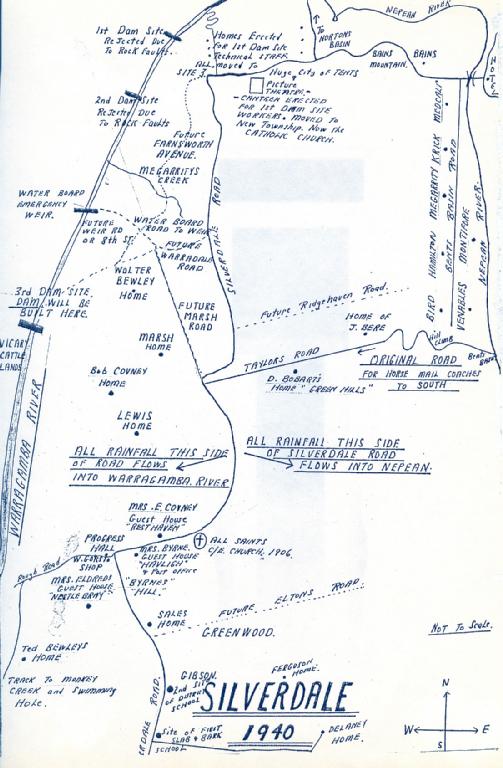 NEPEAN RIVER
1st Dam Site
Rejected Due
To Rock Faults.
Homes Erected
For 1st Dam Site
Technical Staff.
All moved To
Site 3.
To
NORTONS
BASIN
BAINS
MOUNTAIN.
BAINS
HOTEL
Huge City of TENTS
Picture
THEATRE.
- CANTEEN ERECTED
FOR 1st DAM SITE
WORKERS. MOVED TO
New Township. Now the
CATHOLIC CHURCH.
2nd Dam Site
Rejected Due
To Rock Faults
Future
FARNSWORTH
AVENUE.
MEGARRITYS
CREEK
WATER BOARD
EMERGENCY
WEIR.
FUTURE
WEIR RD
OR 8th ST.
WATER BOARD
ROAD TO WEIR
FUTURE
WARRADALE
ROAD
SILVERDALE ROAD
BIRD HAMILTON MEGARRITY KRICK
BENTS BASIN ROAD
VENABLES MONTPIORE
NEPEAN RIVER
WOLTER
BEWLEY
HOME
3rd DAM SITE
DAM WILL BE
BUILT HERE.
VICARY
CATTLE
LANDS
WARRAGAMBA RIVER
FUTURE
MARSH
ROAD
Future Ridgehaven Road.
HOME OF
J. BERE
Hill
CLIMB
MARSH
HOME
TAYLORS ROAD
ORIGINAL ROAD
FOR HORSE MAIL COACHES
TO SOUTH
D. BOBARTS
HOME "GREEN HILLS"
Bob COVNEY
HOME
LEWIS
HOME
ALL RAINFALL THIS SIDE
OF ROAD FLOWS
INTO WARRAGAMBA RIVER
ALL RAINFALL THIS SIDE
OF SILVERDALE ROAD
FLOWS INTO NEPEAN.
MRS. E. COVNEY
Guest House
"RESTHAVEN"
ALL SAINTS
C/E. CHURCH. 1906.
PROGRESS
HALL
SHOP
Rough Road
MRS. BYRNE.
GUEST HOUSE
& Post OFFICE
MRS. ELDREDS
GUEST HOUSE
"BYRNES"
"HILL."
SALES
HOME
FUTURE ELTONS ROAD.
GREENWOOD.
NOT To Scale.
Ted BEWLEYS
HOME
TRACK TO MONKEY
CREEK and SWIMMING
HOLE.
GIBSON.
2nd Site
SCHOOL
FERGUSON
HOME.
SILVERDALE
1940
Site of FIRST
SLAB & BARK
SCHOOL
DELANEY
HOME.
N
W
E
S